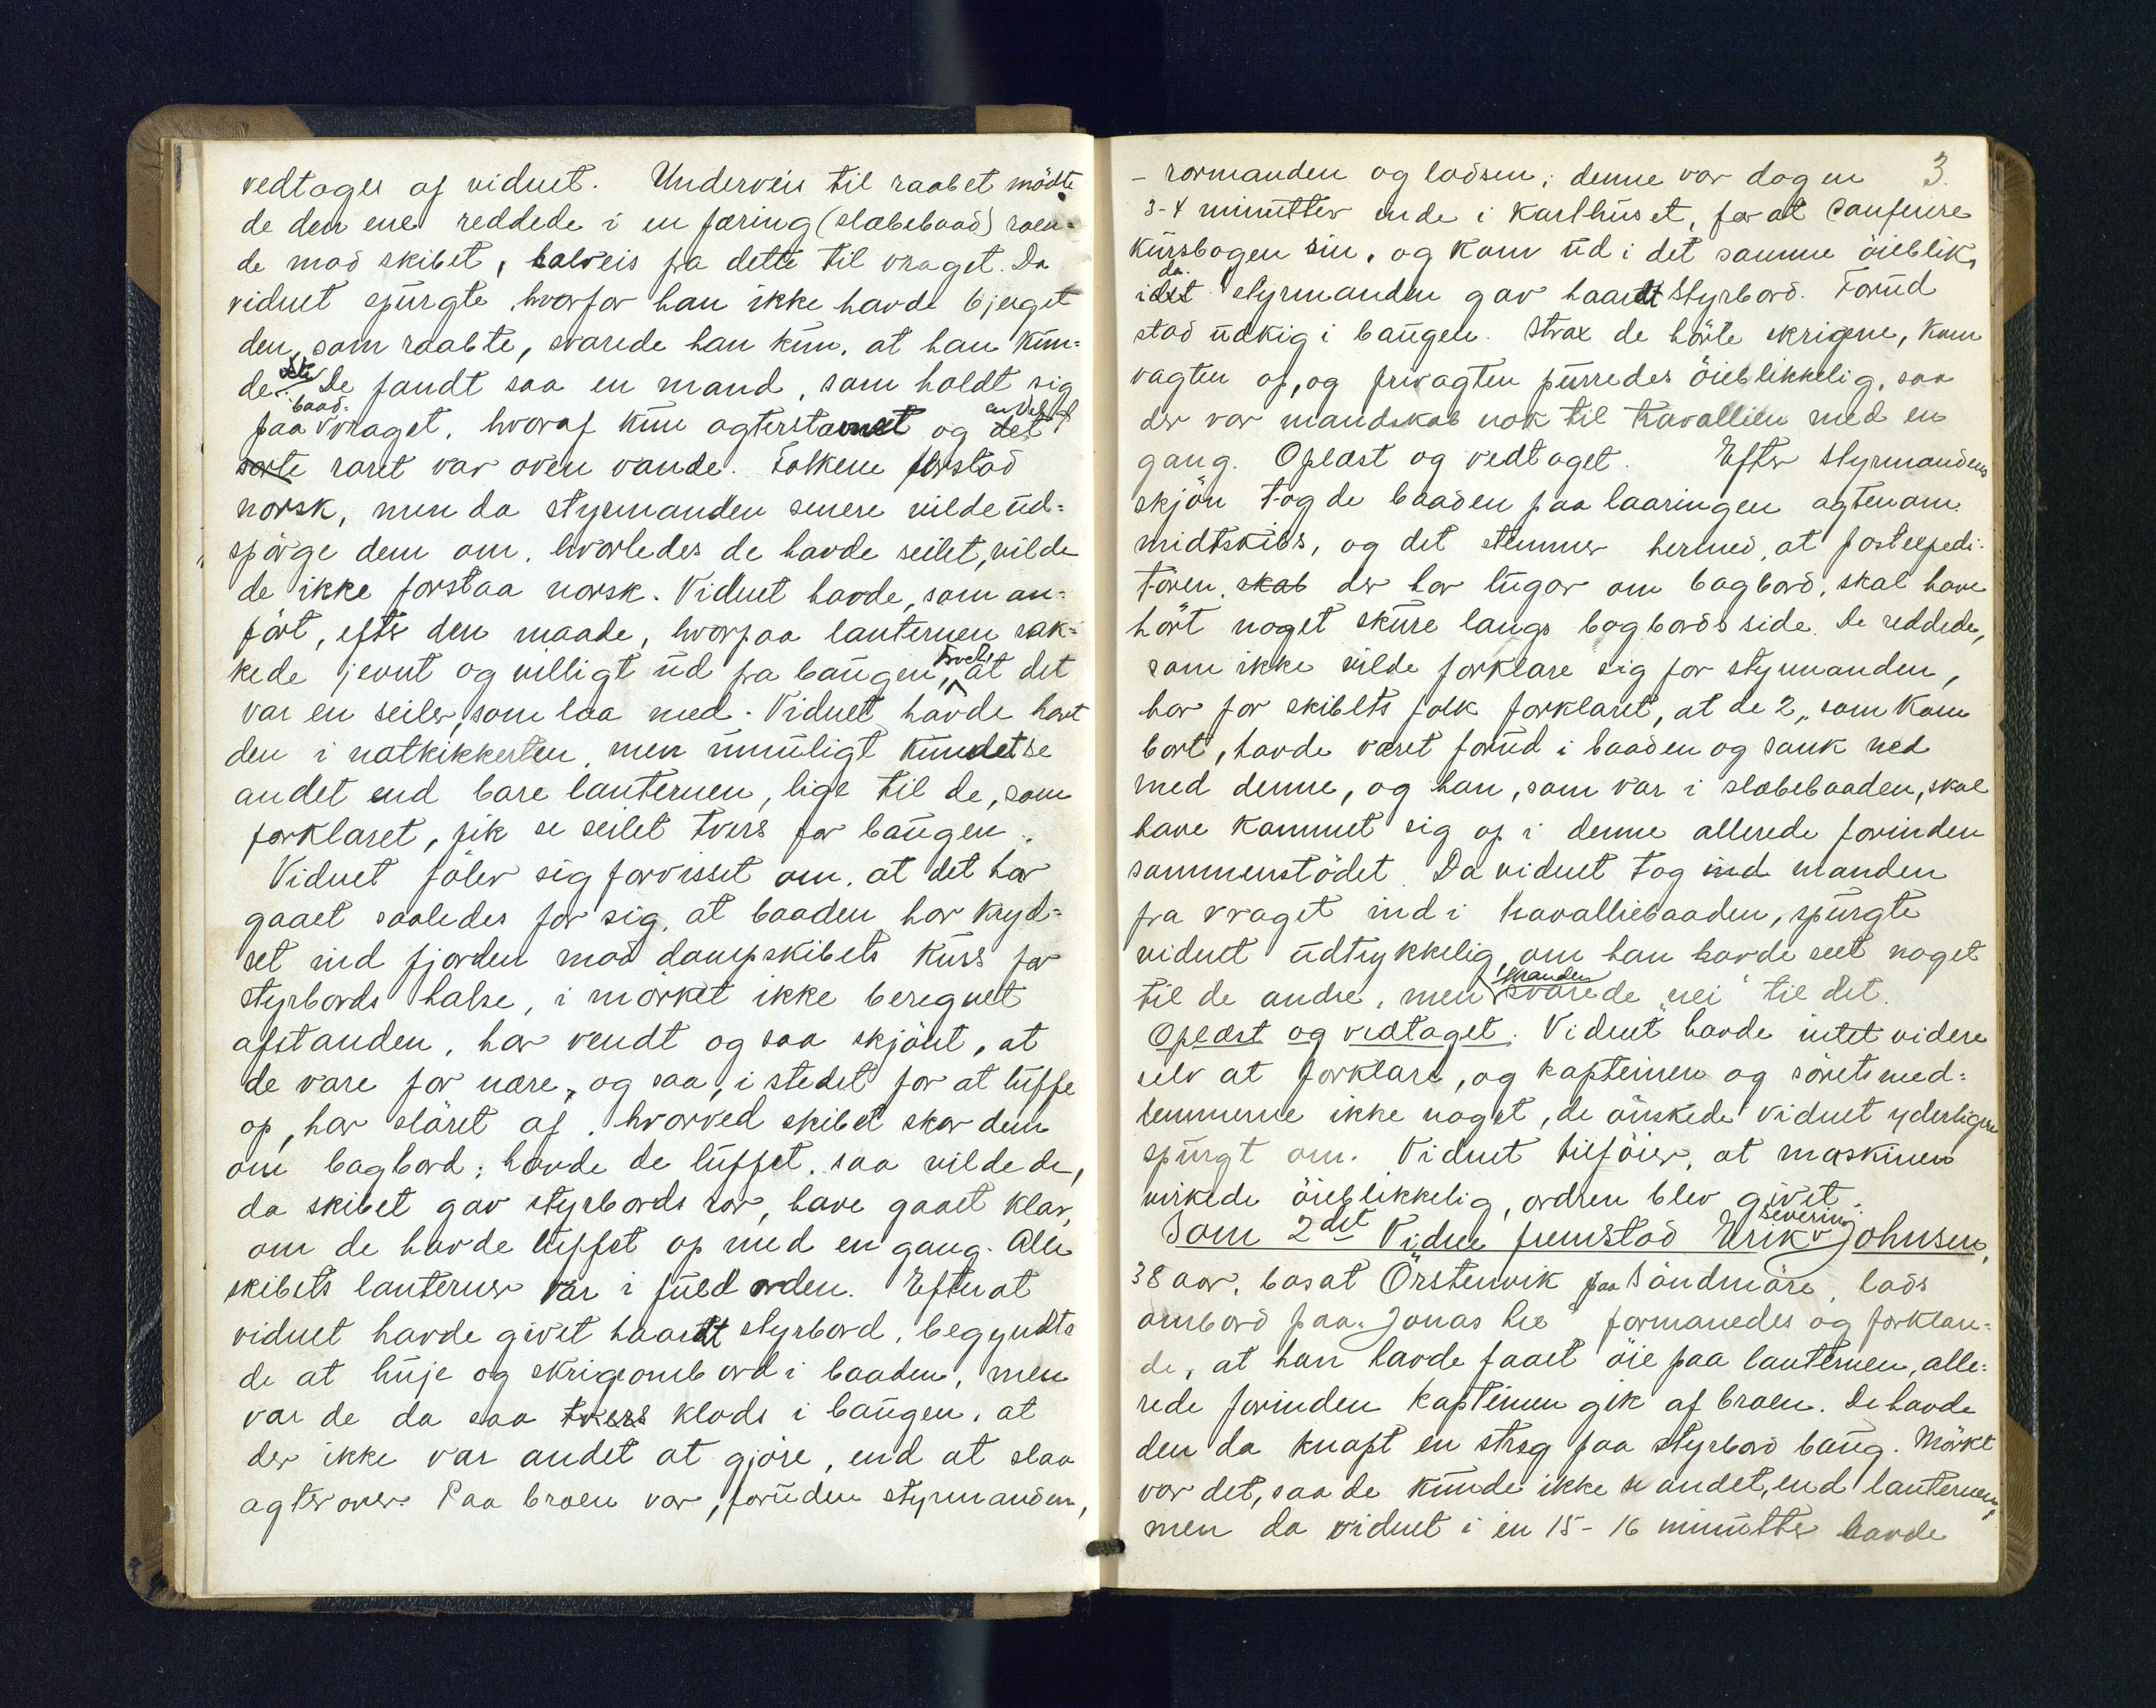 vedtages af vidnet. Underveis til raabet mödte
de den ene reddede i en færing (slæbebaad) roen=
de mod skibet, halveis fra dette til vraget. Da
vidnet spurgte, hvorfor han ikke havde bjerget
den, som raabte, svarede han kun, at han kun=
de ikke. De fandt saa en mand, som holdt sig
paa baadvraget, hvoraf kun agterstavnet og en del af
roret var oven vande. Folkene forstod
norsk, men da styrmanden senere vilde ud=
spörge dem om, hvorledes de havde seilet, vilde
de ikke forstaa norsk. Vidnet havde, som an=
fört, efter den maade, hvorpaa lanternen rak=
kede jevnt og villigt ud fra baugen, troet, at det
var en seiler, som laa med. Vidnet havde havt
den i natkikkerten, men umuligt kundet se
andet end bare lanternen, lige til de, som
forklaret, fik se seilet tvers for baugen.
Vidnet föler sig forvisset om, at det har
gaaet saaledes for sig, at baaden har kryd=
set ind fjorden mod dampskibets kurs for
styrbords halse, i mörket ikke beregnet
afstanden, har vendt og saa skjönt, at
de vare for nære, og saa, i stedet for at luffe
op, har slöret af, hvorved skibet skar dem
om bagbord; havde de luffet, saa vilde de,
da skibet gav styrbords ror, have gaaet klar,
om de havde luffet op med en gang. Alle
skibets lanterner var i fuld orden. Efterat
vidnet havde givet haardt styrbord, begyndte
de at huje og skrige ombord i baaden, men
var de da saa tvers klods i baugen, at
der ikke var andet at gjöre, end at slaa
agterover. Paa broen var, foruden styrmanden,
- rormanden og lodsen; denne var dog en 3.
3-4 minutter inde i karthuset, for at conferere
kursbogen sin, og kom ud i det samme öieblik,
da styrmanden gav haardt styrbord. Forud
stod udkig i baugen. Strax de hörte skrigene, kom
vagten op, og frivagten purredes öieblikkelig, saa
der var mandskab nok til travallien med en
gang. Oplæst og vedtaget. Efter styrmandens
skjön tog de baaden paa laaringen agtenom
midtskibs, og det stemmer hermed, at postexpedi=
tören, der har lugar om bagbord, skal have
hört noget skure langs bagbords side. De reddede,
som ikke vilde forklare sig for styrmanden,
har for skibets folk forklaret, at de 2, som kom
bort, havde været forud i baaden og sank ned
med denne, og han, som var i slæbebaaden, skal
have kommet sig op i denne allerede forinden
sammenstödet. Da vidnet tog manden
fra vraget ind i travalliebaaden, spurgte
vidnet udtrykkelig, om han havde seet noget
til de andre, men manden svarede "nei" til det.
Oplæst og vedtaget. Vidnet havde intet videre
selv at forklare, og kapteinen og sörets med=
lemmerne ikke noget, de önskede vidnet yderligere
spurgt om. Vidnet tilföier, at maskinen
virkede öieblikkelig, ordren blev givet.
Som 2det Vidne fremstod Erik Severin Johnsen,
38 aar, bosat Örstenvik paa Söndmöre, lods
ombord paa "Jonas Lie" formanedes og forklare=
de, at han havde faaet öie paa lanternen, alle=
rede forinden kapteinen gik af broen. De havde
den da knapt en streg paa styrbord baug. Mörkt
var det, saa de kunde ikke se andet, end lanternen,
men da vidnet i en 15-16 minutter havde